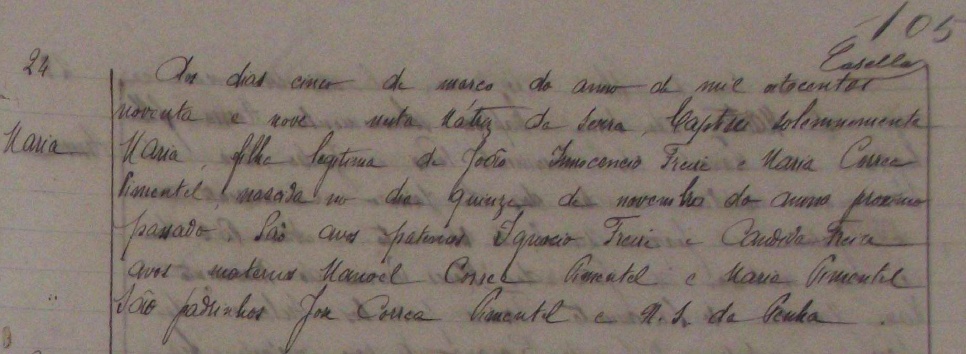 105
Casella
24
Aos dias cinco de março do anno de mil otocentos
noventa e nove nesta Mátriz da Serra, baptisei solemnemente
Maria
Maria, filha legitima de João Innocencio Freire e Maria Correa
Pimentel, nascida no dia quinze de novembro do anno proximo
passado São avos paternos Ignacio Freire e Candida Freire
avos maternos Manoel Correa Pimentel e Maria Pimentel
São padrinhos José Correa Pimentel e N. S. da Penha.